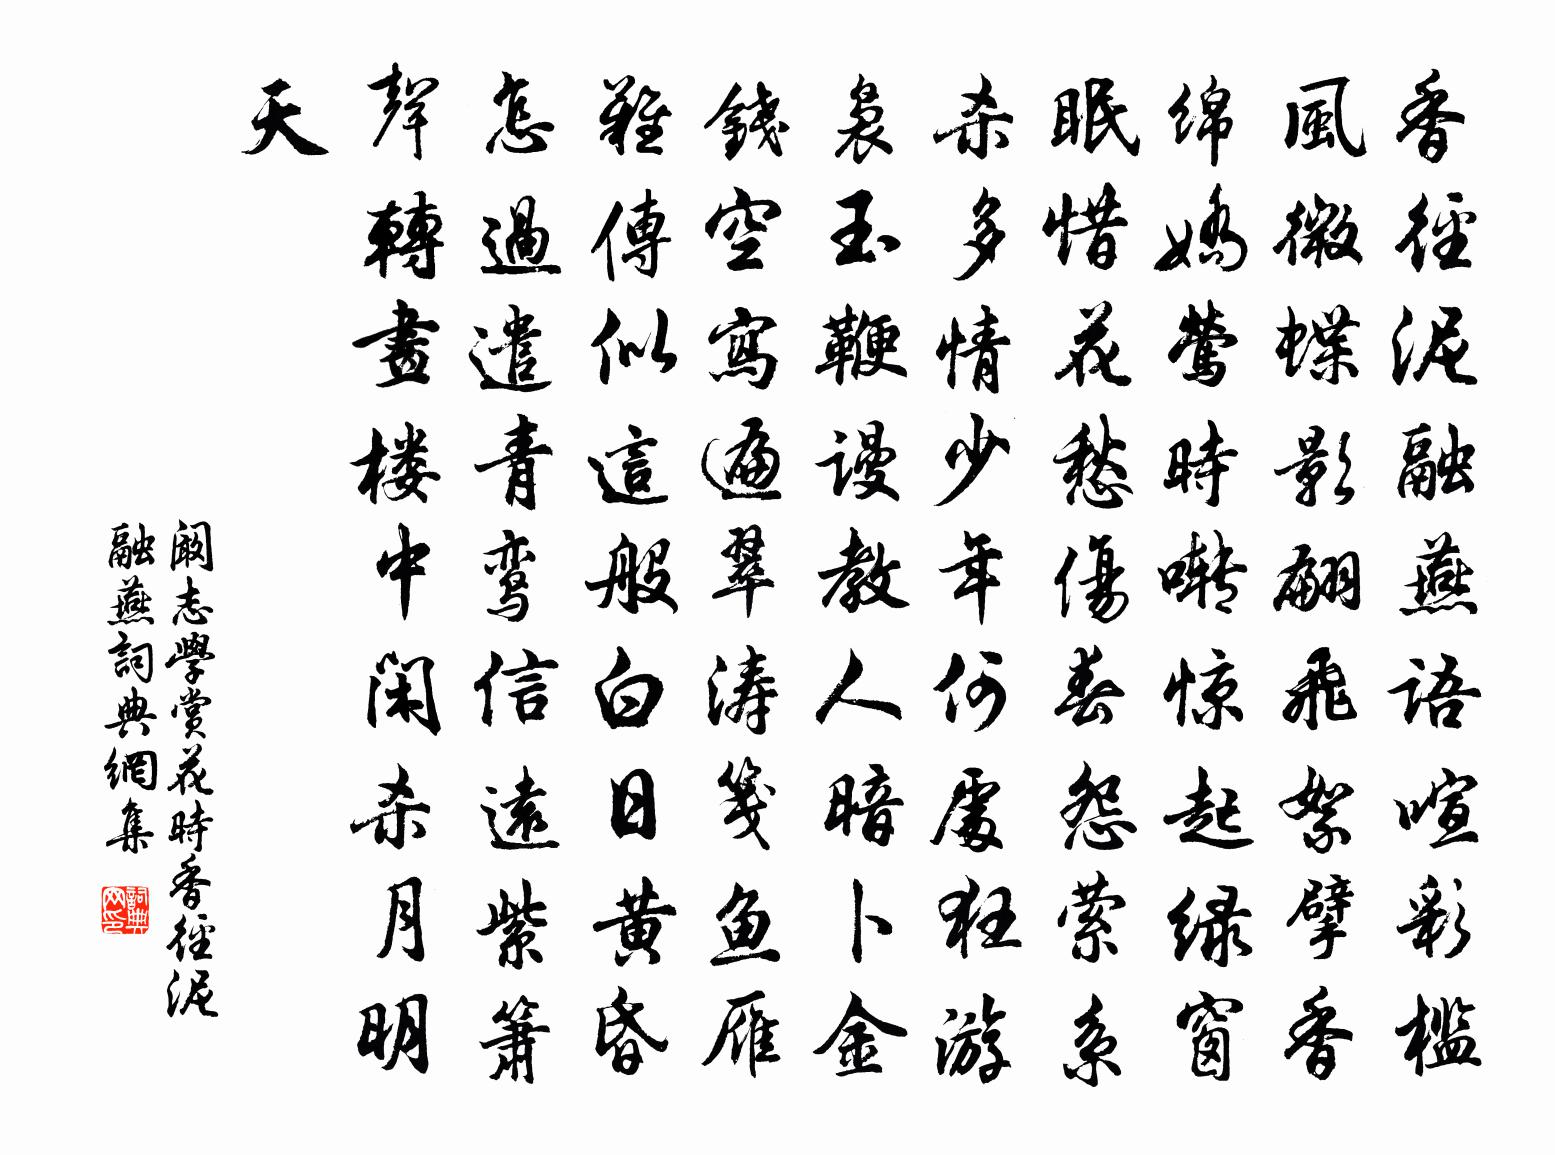 香徑泥融燕語喧彩檻
風微蝶影翩飛絮擘香
綿嬌鶯時囀惊起緑窗
眠惜花愁傷春怨萦系
杀多情少年何處狂游
裊玉鞭謾教人暗卜金
錢空寫遍翠涛箋鱼雁
難傳似這般白日黄昏
怎過遣青鸾信遠紫箫
聲轉畫楼中閑杀月明
天
阚志學賞花時香徑泥
融燕詞典網集
詞典
网印